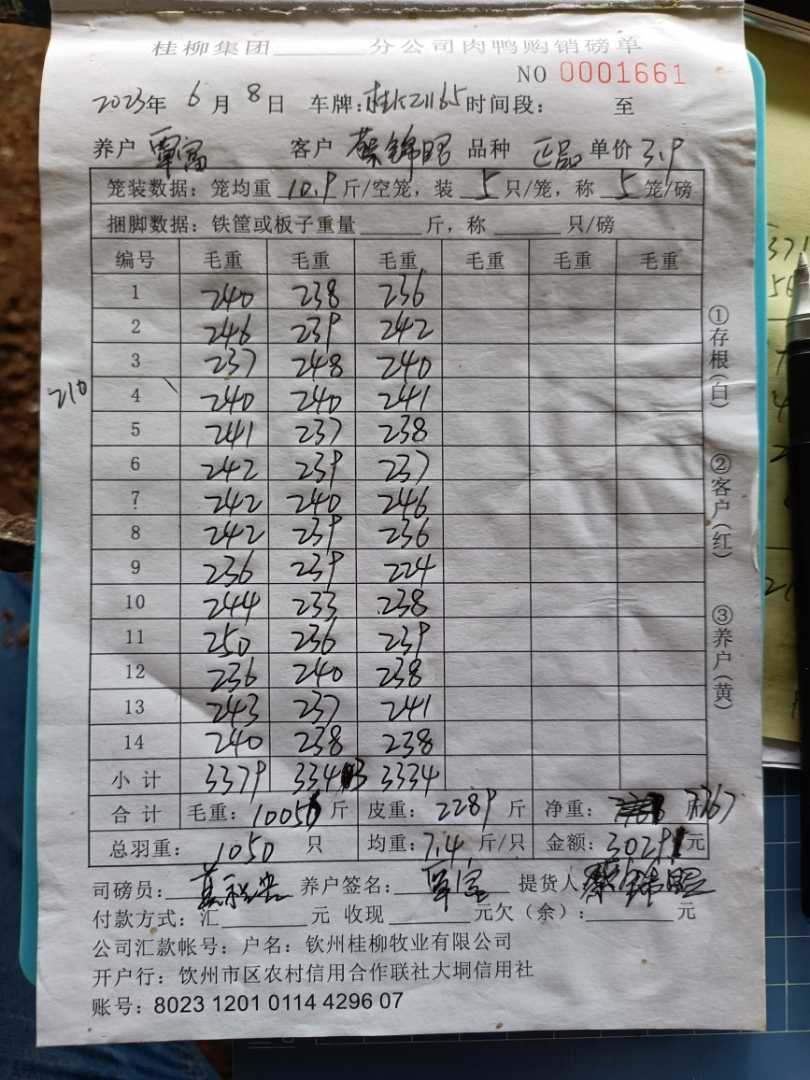 桂柳集团______分公司肉鸭购销磅单
NO 0001661
2023年 6月 8日 车牌:桂K21165 时间段: 至
养户 覃富 客户 蔡锦昭 品种 正品 单价 3.9
笼装数据: 笼均重 10.9 斤/空笼, 装 5 只/笼, 称 5 笼/磅
捆脚数据: 铁筐或板子重量______斤, 称______只/磅
编号 毛重 毛重 毛重 毛重 毛重 毛重
1 240 238 236
2 246 239 242
3 237 248 240
210 4 240 240 241
5 241 237 238
6 242 239 237
7 242 240 246
8 242 239 236
9 236 239 224
10 244 233 238
11 250 236 239
12 236 240 238
13 243 237 241
14 240 238 238
小计 3379 3343 3334
合计 毛重: 10056 斤 皮重: 2289 斤 净重: 7767
总羽重: 1050 只 均重: 7.4 斤/只 金额: 30291 元
司磅员: 养户签名: 覃富 提货人 蔡锦昭
付款方式: 汇______元 收现______元欠(余):______元
公司汇款帐号: 户名: 钦州桂柳牧业有限公司
开户行: 钦州市区农村信用合作联社大垌信用社
账号: 8023 1201 0114 4296 07
①存根(白) ②客户(红) ③养户(黄)